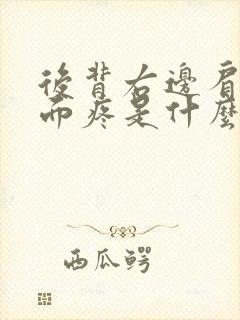 後背右邊肩
而疼是什麼
西瓜鳄